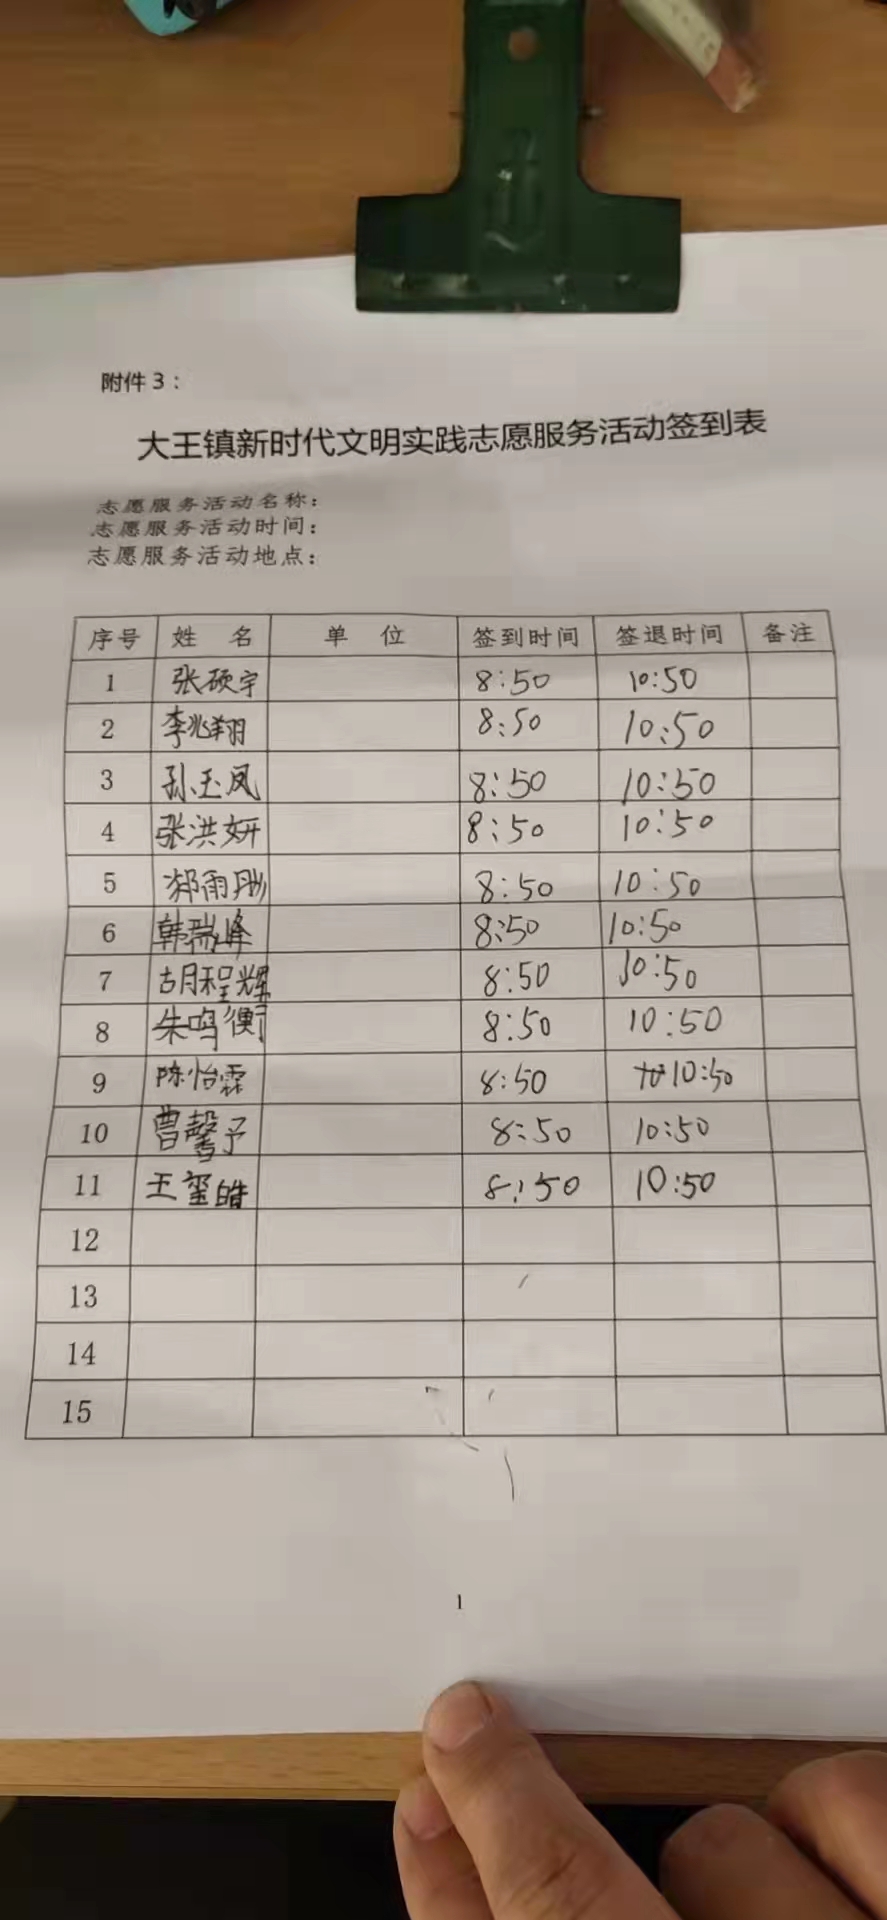 附件3：
大王镇新时代文明实践志愿服务活动签到表
志愿服务活动名称：
志愿服务活动时间：
志愿服务活动地点：
序号 姓 名 单 位 签到时间 签退时间 备注
1 张硕宇 8:50 10:50
2 李兆翔 8:50 10:50
3 孙玉凤 8:50 10:50
4 张洪妍 8:50 10:50
5 郑雨彤 8:50 10:50
6 韩瑞峰 8:50 10:50
7 胡程辉 8:50 10:50
8 朱鸣衡 8:50 10:50
9 陈怡霖 8:50 10:50
10 曹馨予 8:50 10:50
11 王玺皓 8:50 10:50
12
13
14
15
1